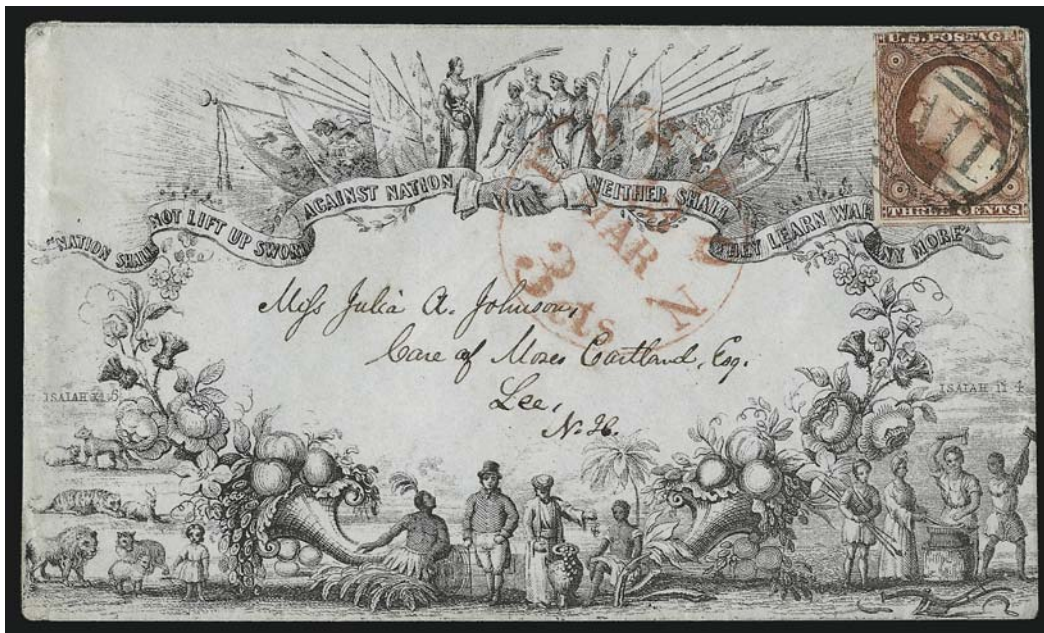 U.S. POSTAGE
THREE CENTS
"NATION SHALL NOT LIFT UP SWORD AGAINST NATION NEITHER SHALL THEY LEARN WAR ANY MORE"
MAR
3
Miss Julia A. Johnson,
Care of Moses Cartland, Esq.
Lee,
N.H.
ISAIAH 11.
ISAIAH 11 4